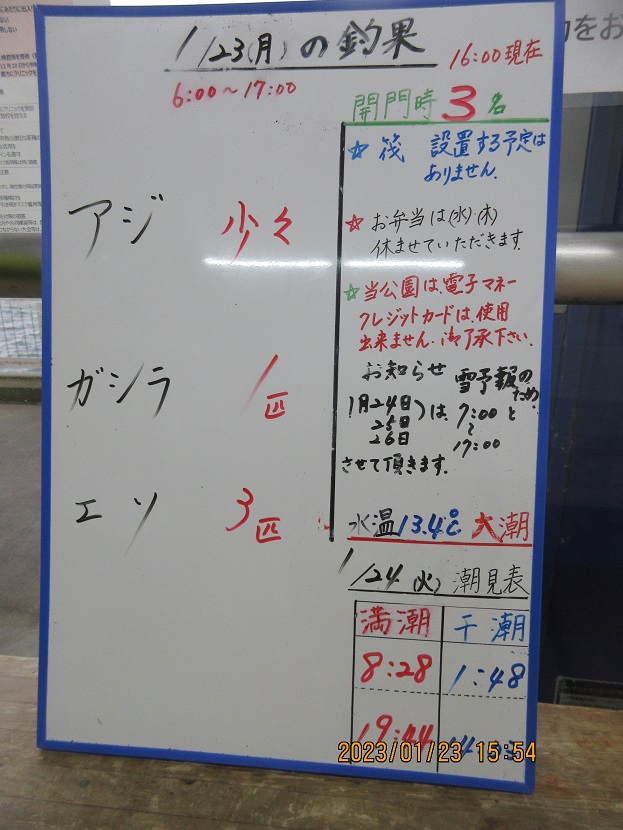 1/23(月)の釣果
16:00現在
6:00〜17:00
開門時3名
アジ 少々
ガシラ 1匹
エソ 3匹
☆ 筏 設置する予定は
ありません.
☆ お弁当は(水)(木)
休ませていただきます.
☆当公園は、電子マネー
クレジットカードは、使用
出来ません.御了承下さい.
お知らせ 雪予報のため
1月24日
25日
26日
は、7:00
〜
17:00
と
させて頂きます.
水温13.4℃ 大潮
1/24(火)潮見表
満潮 干潮
8:28 1:48
19:44
2023/01/23 15:54